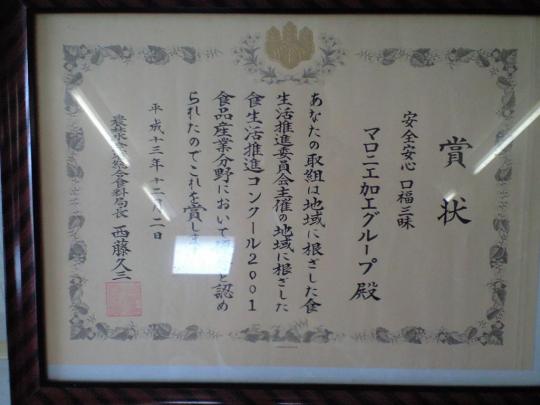 賞状
安全安心 口福三昧
マロニエ加工グループ 殿
あなたの取組は地域に根ざした食
生活推進委員会主催の地域に根ざした
食生活推進コンクール2001
食品産業分野において と認め
られたのでこれを賞しま
平成十三年十二月二日
農林水産省総合食料局長 西藤久三